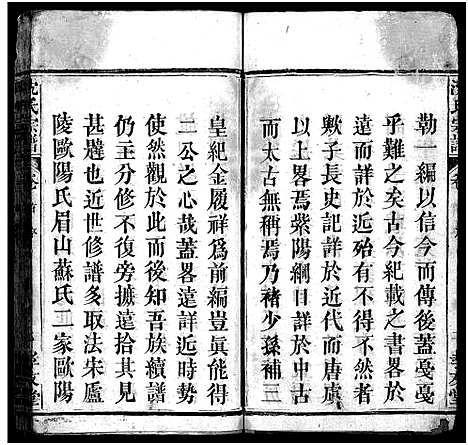 沈氏宗譜
勒一編以信今而傳後蓋戛戛
乎難之矣古今紀載之書畧於
遠而詳於近殆有不期然者
歟子長史記詳於近代而唐虞
以上畧焉紫陽綱目詳於中古
而太古無稱焉乃褚少孫補三
皇紀金履祥爲前編豈眞能得
二公之心哉蓋畧遠詳近時勢
使然觀於此可知吾族續譜
仍主分修不復旁摭遠拾其見
甚韙也近世修譜多取法朱廬
陵歐陽氏眉山蘇氏二家歐陽
沈氏宗譜